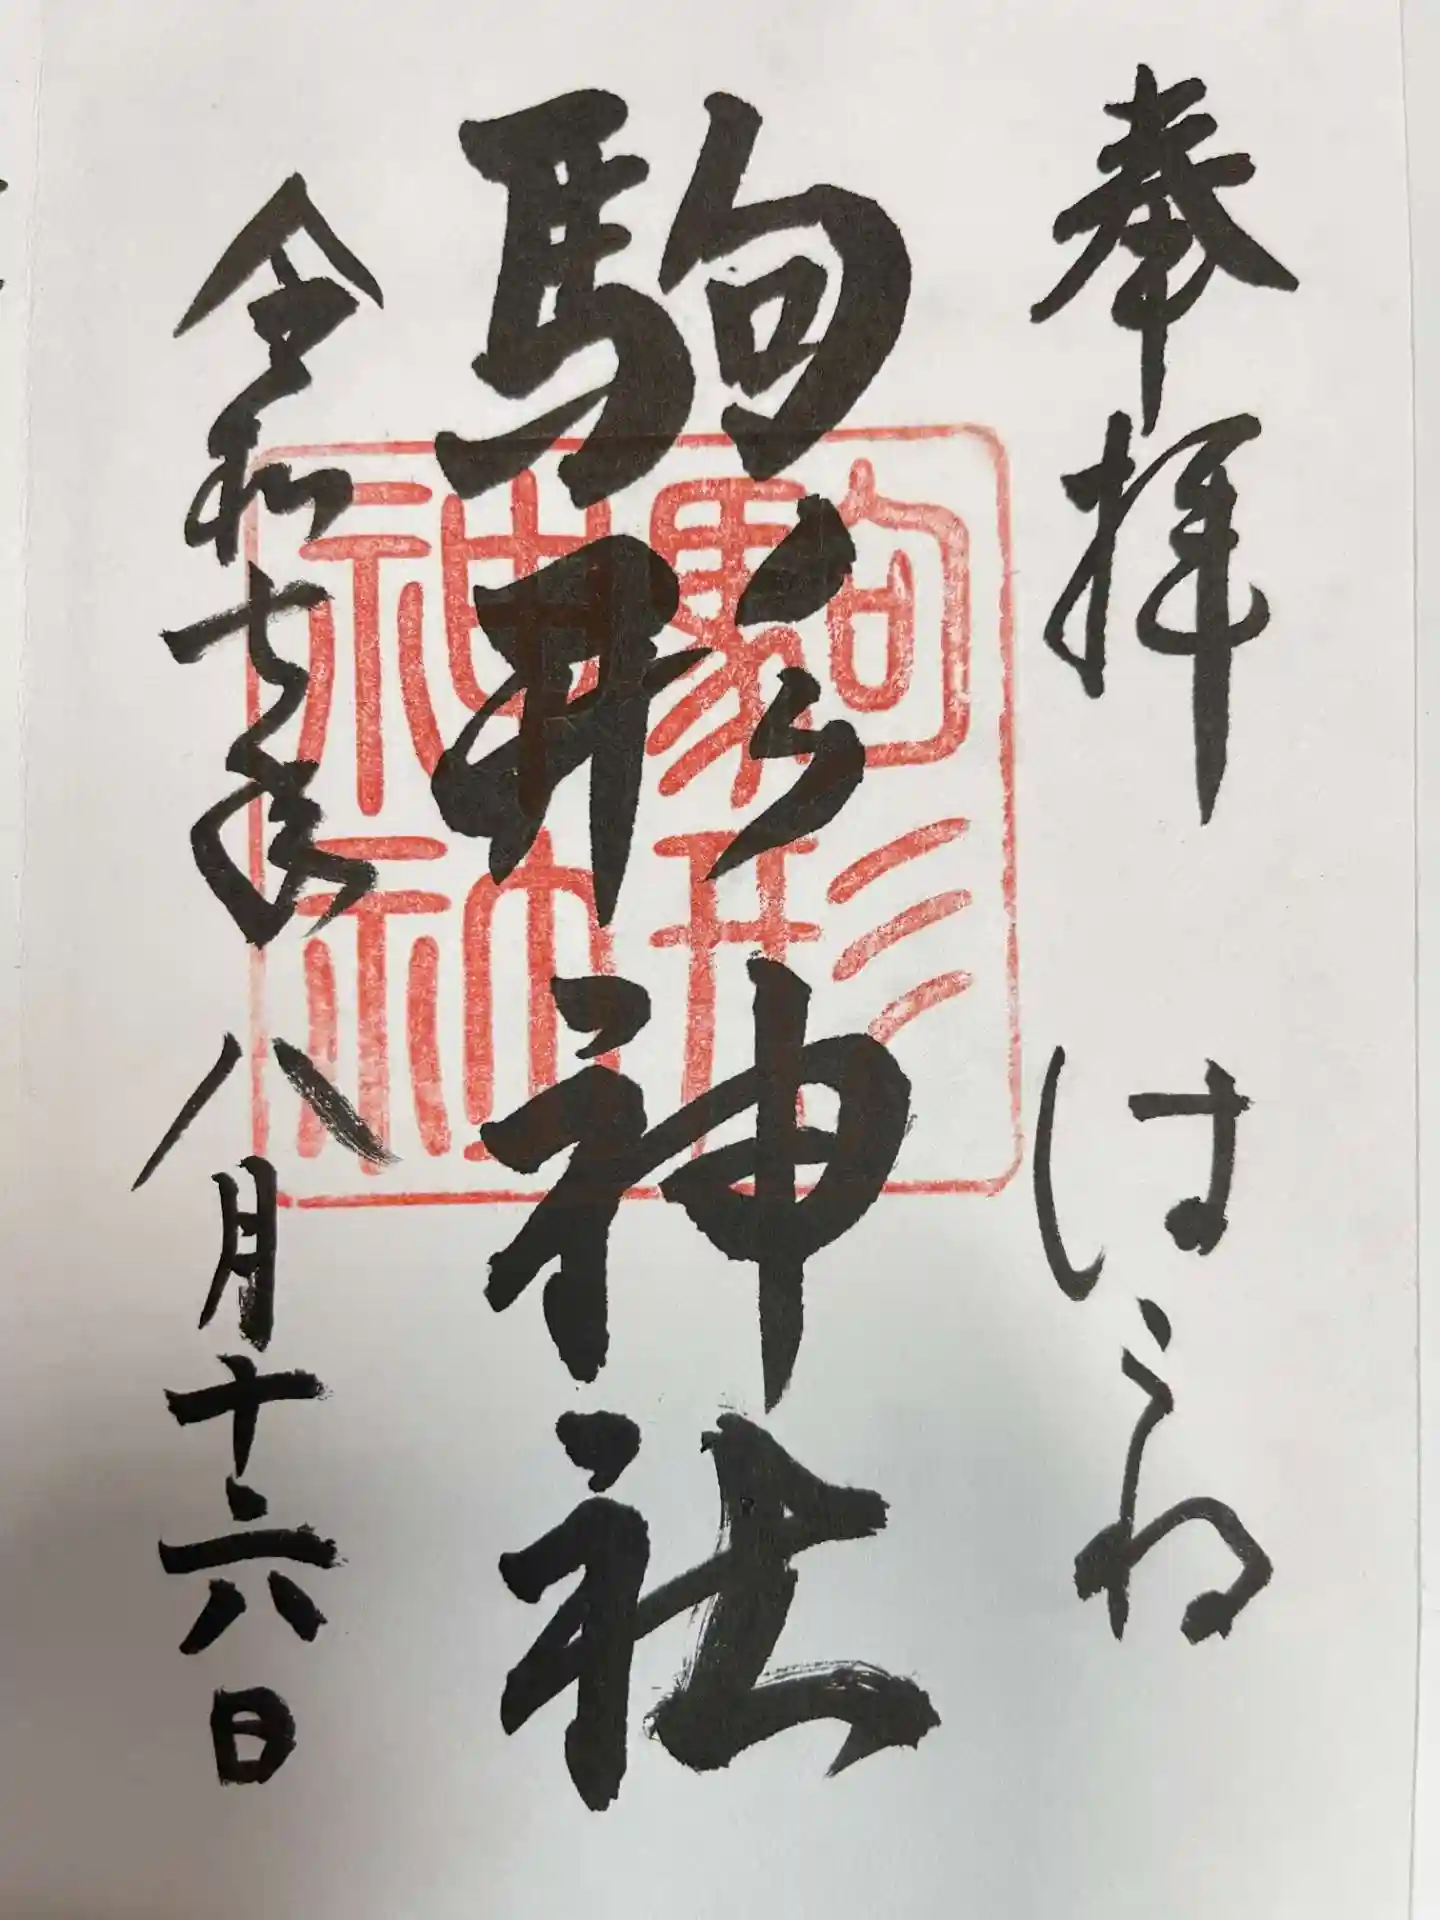 奉拝 はこね
駒形神社
令和七年八月十六日
駒形
神